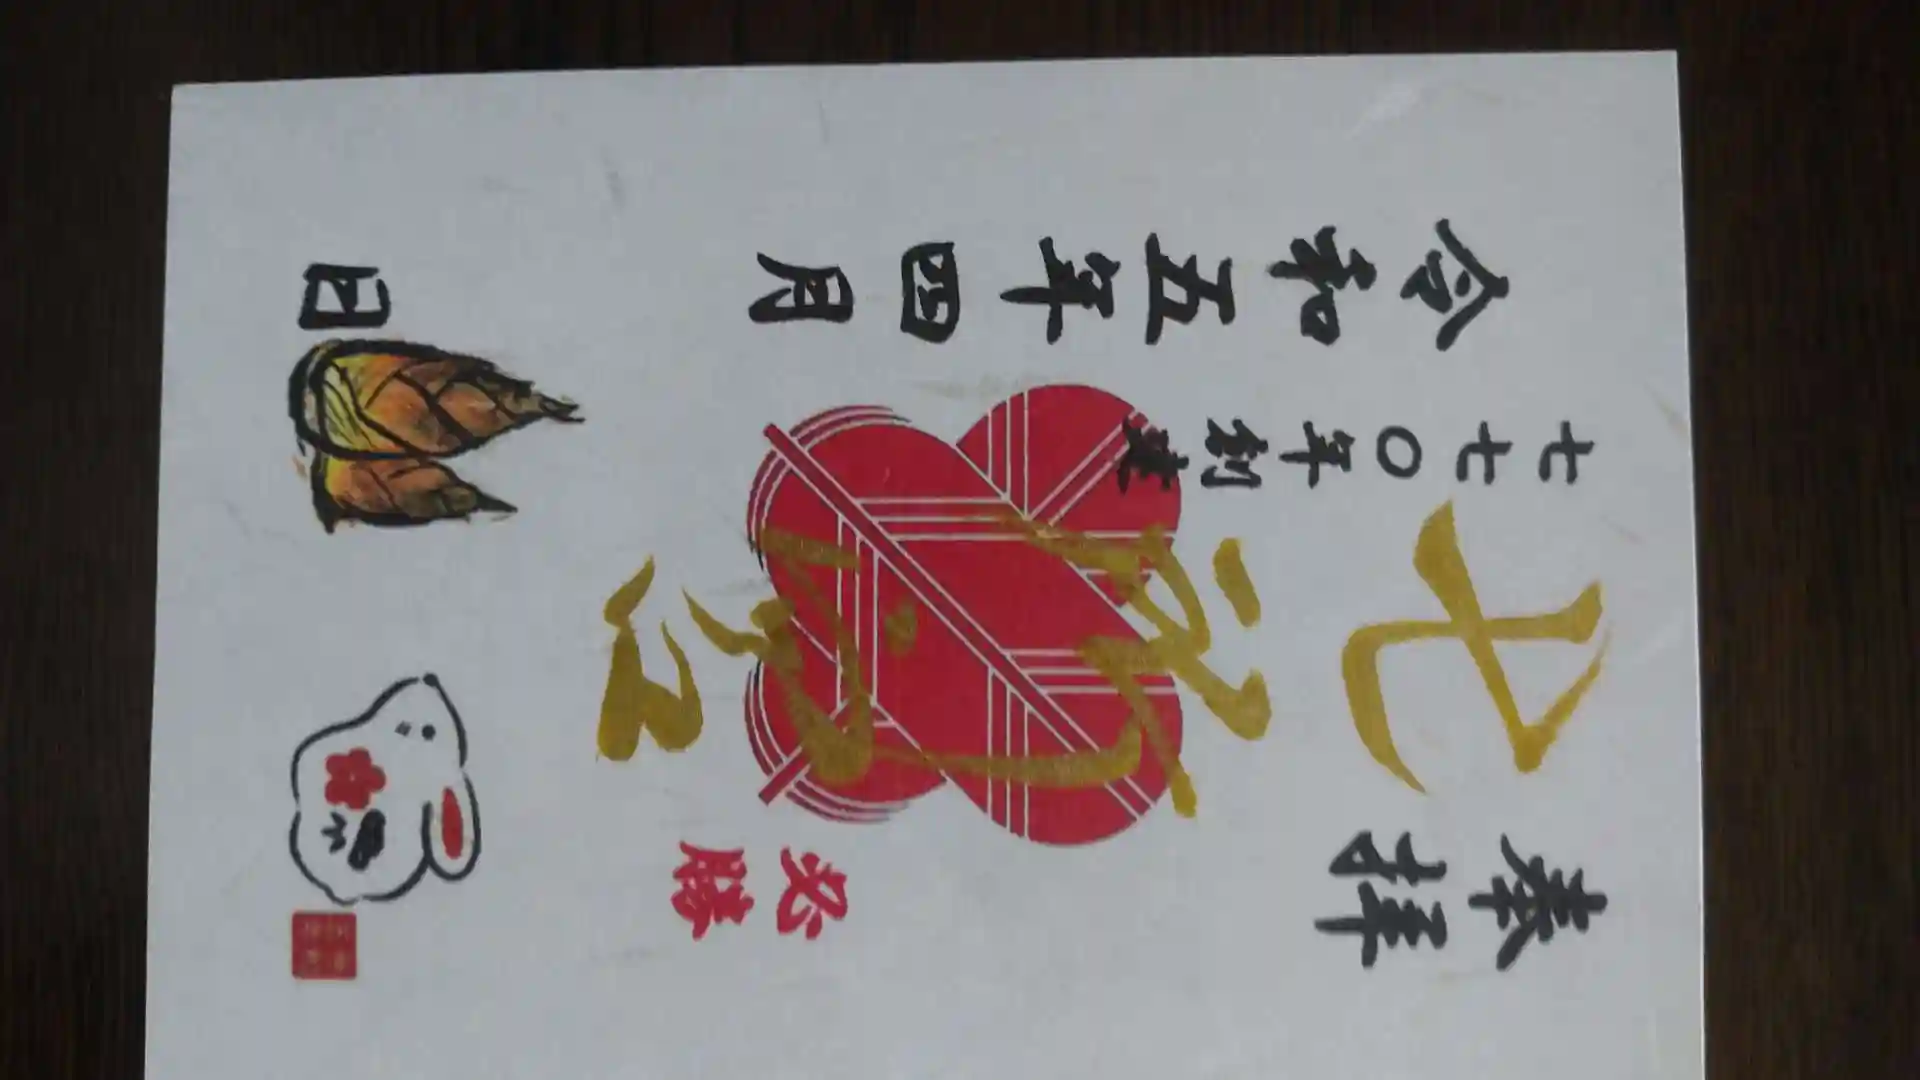 奉拝
必勝
七
七七〇年創建
令和五年四月 日